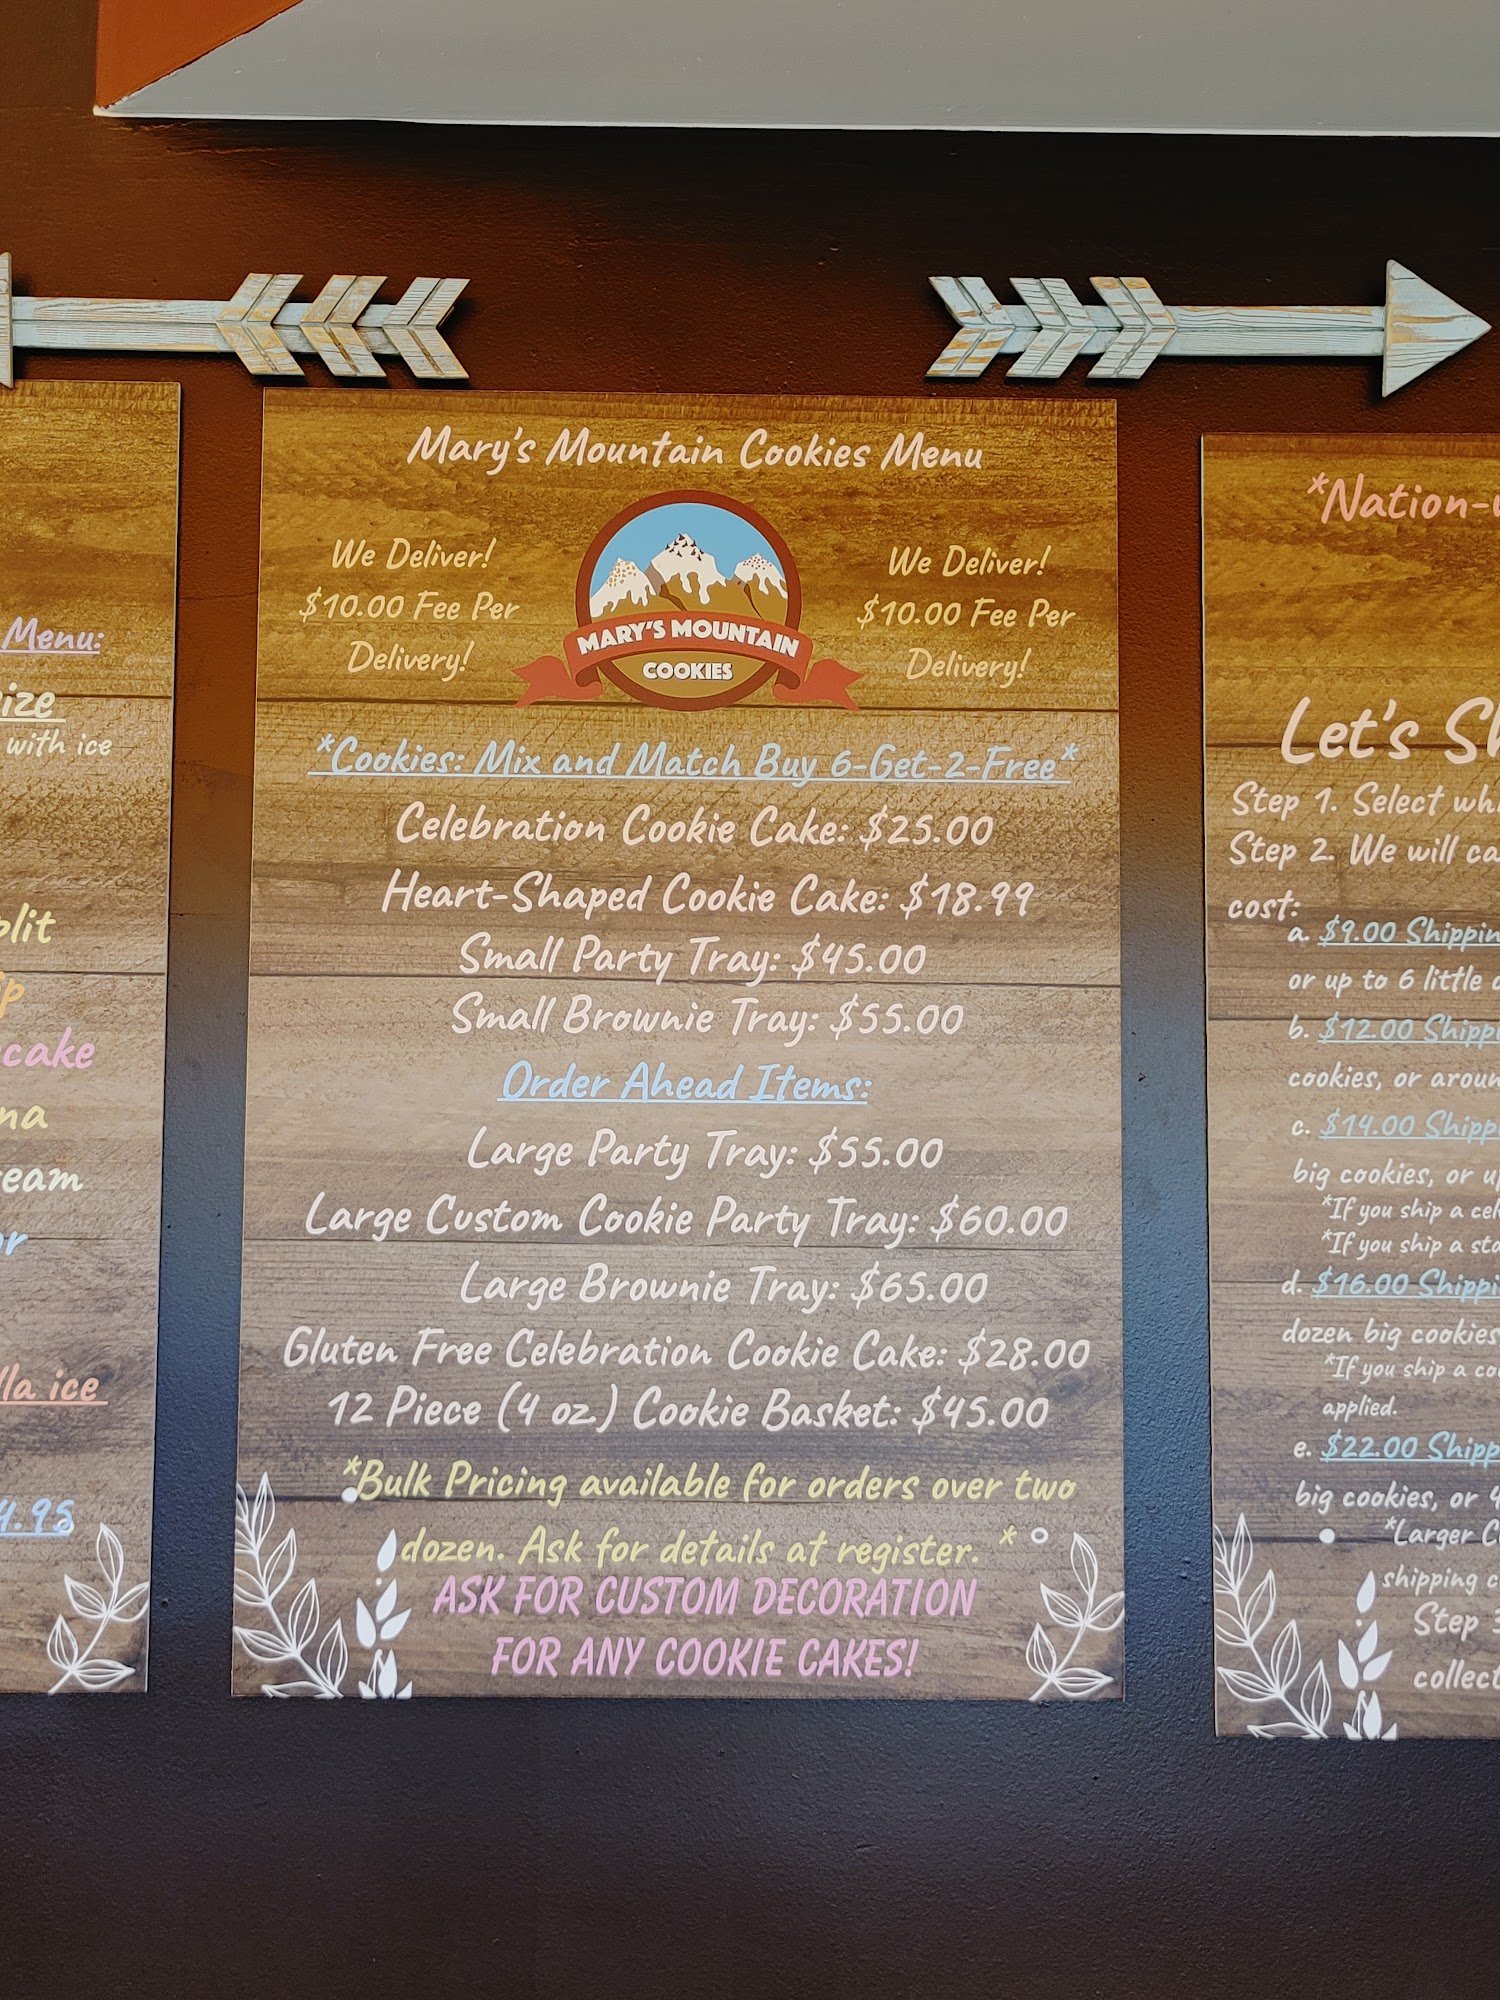 Menu:
with ice
cake
4.95
Mary's Mountain Cookies Menu
We Deliver!
$10.00 Fee Per
Delivery!
MARY'S MOUNTAIN
COOKIES
We Deliver!
$10.00 Fee Per
Delivery!
*Cookies: Mix and Match Buy 6-Get-2-Free*
Celebration Cookie Cake: $25.00
Heart-Shaped Cookie Cake: $18.99
Small Party Tray: $45.00
Small Brownie Tray: $55.00
Order Ahead Items:
Large Party Tray: $55.00
Large Custom Cookie Party Tray: $60.00
Large Brownie Tray: $65.00
Gluten Free Celebration Cookie Cake: $28.00
12 Piece (4 oz.) Cookie Basket: $45.00
*Bulk Pricing available for orders over two
dozen. Ask for details at register. *
ASK FOR CUSTOM DECORATION
FOR ANY COOKIE CAKES!
*Nation-
Let's
Step 1. Select
Step 2. We will
cost:
a. $9.00 Shippin
or up to 6 little
b. $12.00 Shippi
cookies, or
c. $14.00 Shippi
big cookies, or
*If you ship a
*If you ship a
d. $16.00 Shippi
dozen big cookies
*If you ship a
applied.
e. $22.00 Shipp
big cookies, or 4
*Larger
shipping
Step
collect